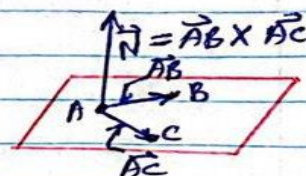 N⃗ = A⃗B × A⃗C
A⃗B
A B
C
A⃗C